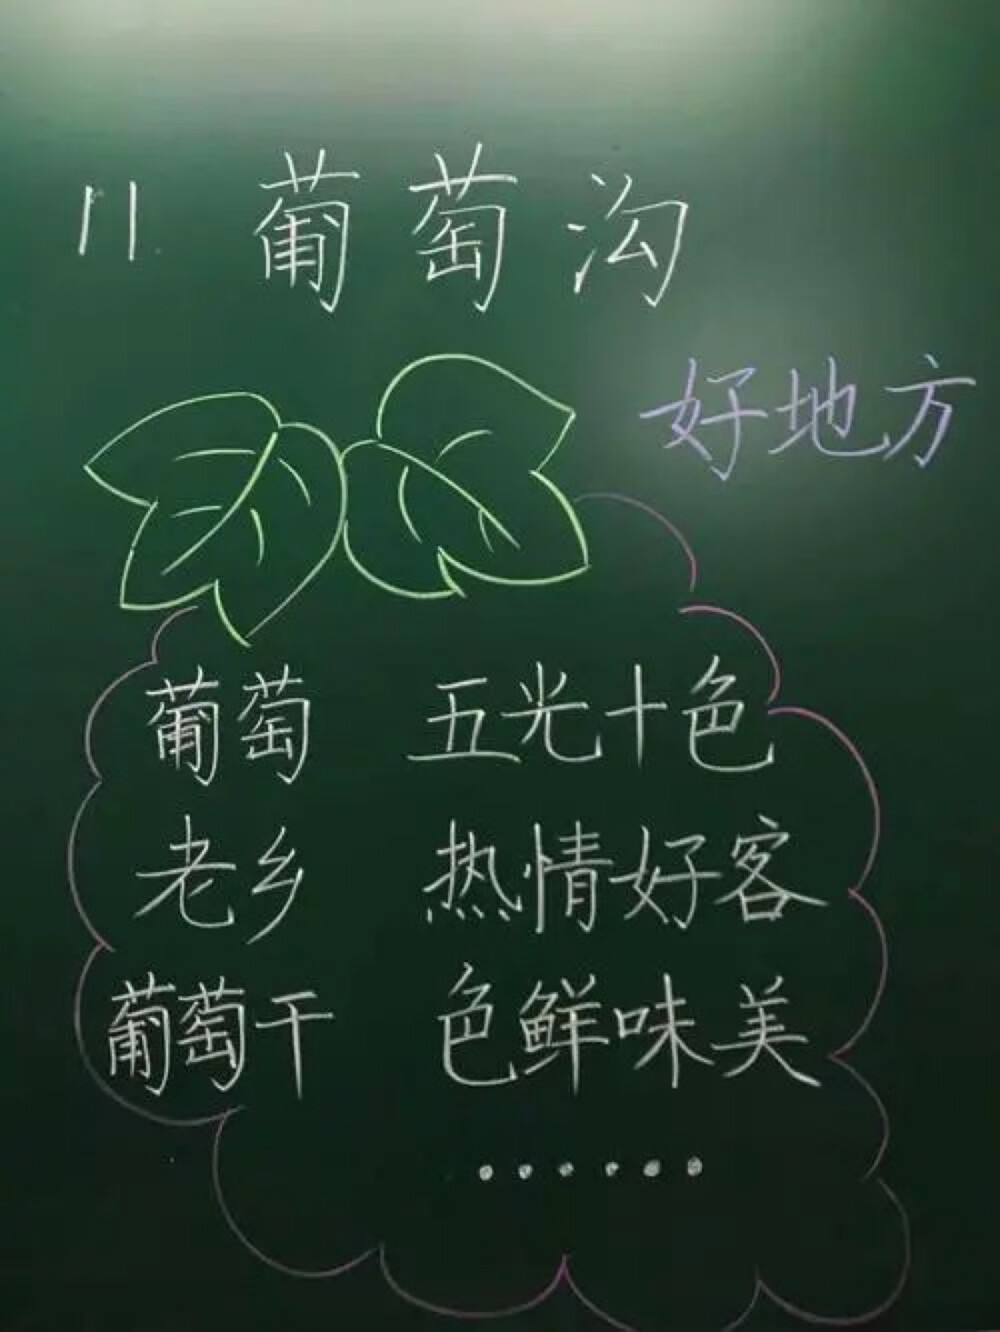 11 葡萄沟
好地方
葡萄 五光十色
老乡 热情好客
葡萄干 色鲜味美
......